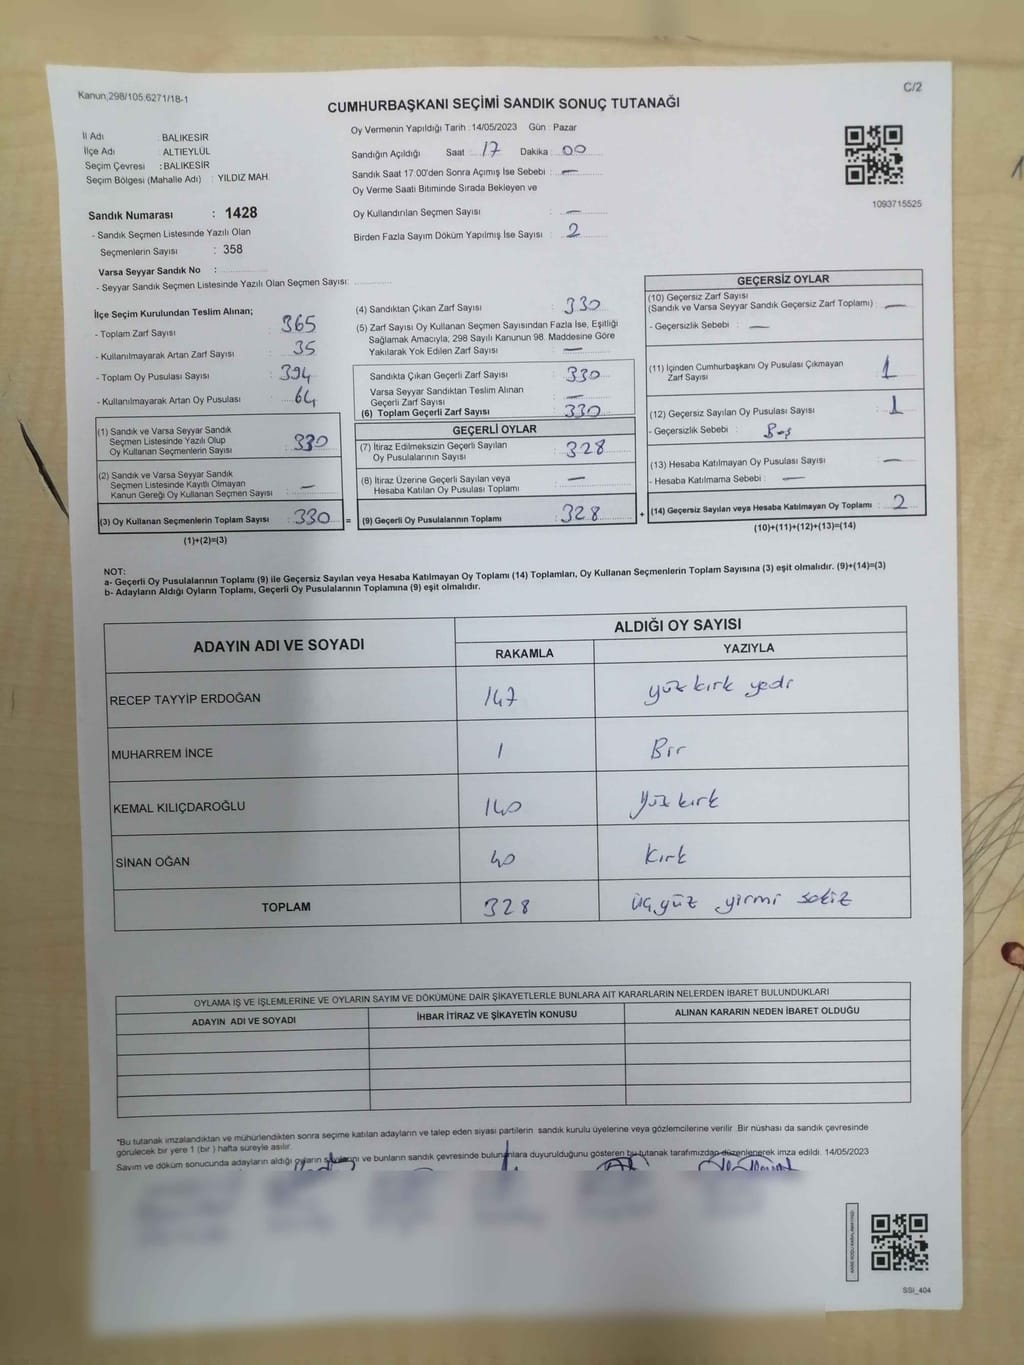 Kanun;298/105;6271/18-1
C/2
CUMHURBAŞKANI SEÇİMİ SANDIK SONUÇ TUTANAĞI
İl Adı BALIKESİR
İlçe Adı ALTIEYLÜL
Seçim Çevresi : BALIKESİR
Seçim Bölgesi (Mahalle Adı) : YILDIZ MAH.
Sandık Numarası : 1428
- Sandık Seçmen Listesinde Yazılı Olan
Seçmenlerin Sayısı : 358
Varsa Seyyar Sandık No :
- Seyyar Sandık Seçmen Listesinde Yazılı Olan Seçmen Sayısı:
Oy Vermenin Yapıldığı Tarih : 14/05/2023 Gün : Pazar
Sandığın Açıldığı Saat : 17 Dakika : 00
Sandık Saat 17.00'den Sonra Açımış İse Sebebi : —
Oy Verme Saati Bitiminde Sırada Bekleyen ve
Oy Kullandırılan Seçmen Sayısı : —
Birden Fazla Sayım Döküm Yapılmış İse Sayısı : 2
1093715525
İlçe Seçim Kurulundan Teslim Alınan;
- Toplam Zarf Sayısı : 365
- Kullanılmayarak Artan Zarf Sayısı : 35
- Toplam Oy Pusulası Sayısı : 394
- Kullanılmayarak Artan Oy Pusulası : 64
(1) Sandık ve Varsa Seyyar Sandık
Seçmen Listesinde Yazılı Olup
Oy Kullanan Seçmenlerin Sayısı : 330
(2) Sandık ve Varsa Seyyar Sandık
Seçmen Listesinde Kayıtlı Olmayan
Kanun Gereği Oy Kullanan Seçmen Sayısı : —
(3) Oy Kullanan Seçmenlerin Toplam Sayısı : 330 =
(1)+(2)=(3)
(4) Sandıktan Çıkan Zarf Sayısı : 330
(5) Zarf Sayısı Oy Kullanan Seçmen Sayısından Fazla İse, Eşitliği
Sağlamak Amacıyla; 298 Sayılı Kanunun 98. Maddesine Göre
Yakılarak Yok Edilen Zarf Sayısı : —
Sandıkta Çıkan Geçerli Zarf Sayısı : 330
Varsa Seyyar Sandıktan Teslim Alınan
Geçerli Zarf Sayısı : —
(6) Toplam Geçerli Zarf Sayısı : 330
GEÇERLİ OYLAR
(7) İtiraz Edilmeksizin Geçerli Sayılan
Oy Pusulalarının Sayısı : 328
(8) İtiraz Üzerine Geçerli Sayılan veya
Hesaba Katılan Oy Pusulası Toplamı : —
(9) Geçerli Oy Pusulalarının Toplamı : 328 +
GEÇERSİZ OYLAR
(10) Geçersiz Zarf Sayısı
(Sandık ve Varsa Seyyar Sandık Geçersiz Zarf Toplamı) : —
- Geçersizlik Sebebi : —
(11) İçinden Cumhurbaşkanı Oy Pusulası Çıkmayan
Zarf Sayısı : 1
(12) Geçersiz Sayılan Oy Pusulası Sayısı : 1
- Geçersizlik Sebebi : Boş
(13) Hesaba Katılmayan Oy Pusulası Sayısı : —
- Hesaba Katılmama Sebebi : —
(14) Geçersiz Sayılan veya Hesaba Katılmayan Oy Toplamı : 2
(10)+(11)+(12)+(13)=(14)
NOT:
a- Geçerli Oy Pusulalarının Toplamı (9) ile Geçersiz Sayılan veya Hesaba Katılmayan Oy Toplamı (14) Toplamları, Oy Kullanan Seçmenlerin Toplam Sayısına (3) eşit olmalıdır. (9)+(14)=(3)
b- Adayların Aldığı Oyların Toplamı, Geçerli Oy Pusulalarının Toplamına (9) eşit olmalıdır.
ADAYIN ADI VE SOYADI ALDIĞI OY SAYISI
RAKAMLA YAZIYLA
RECEP TAYYİP ERDOĞAN 147 yüz kırk yedi
MUHARREM İNCE 1 Bir
KEMAL KILIÇDAROĞLU 140 Yüz kırk
SİNAN OĞAN 40 Kırk
TOPLAM 328 üçyüz yirmi sekiz
OYLAMA İŞ VE İŞLEMLERİNE VE OYLARIN SAYIM VE DÖKÜMÜNE DAİR ŞİKAYETLERLE BUNLARA AİT KARARLARIN NELERDEN İBARET BULUNDUKLARI
ADAYIN ADI VE SOYADI İHBAR İTİRAZ VE ŞİKAYETİN KONUSU ALINAN KARARIN NEDEN İBARET OLDUĞU
*Bu tutanak imzalandıktan ve mühürlendikten sonra seçime katılan adayların ve talep eden siyasi partilerin sandık kurulu üyelerine veya gözlemcilerine verilir. Bir nüshası da sandık çevresinde
görülecek bir yere 1 (bir ) hafta süreyle asılır.
Sayım ve döküm sonucunda adayların aldığı oyların sayılarını ve bunların sandık çevresinde bulunanlara duyurulduğunu gösteren bu tutanak tarafımızdan düzenlenerek imza edildi. 14/05/2023
SSI_404